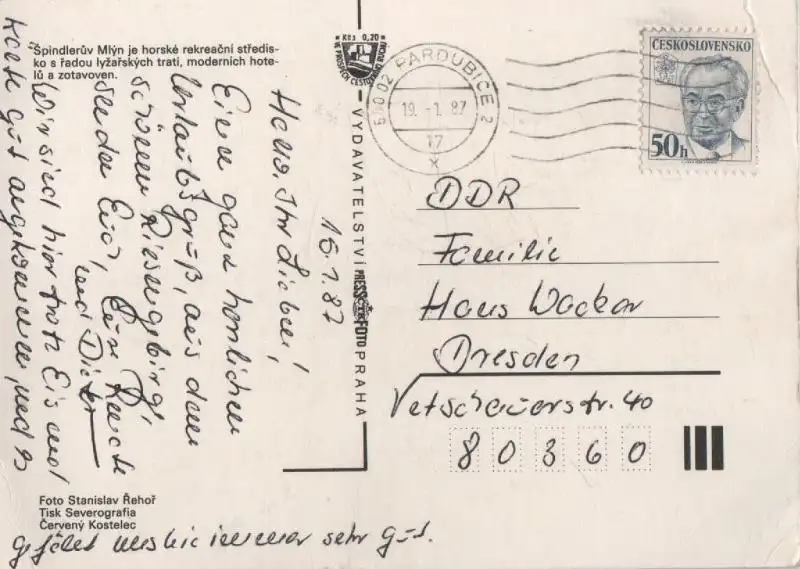 Špindlerův Mlýn je horské rekreační středis-
ko s řadou lyžařských tratí, moderních hote-
lů a zotavoven.
Kčs 0,20
VYDAVATELSTVÍ PRESSFOTO PRAHA
530 02 PARDUBICE 2
19. -1. 87
17
x
ČESKOSLOVENSKO
50h
16.1.87
Hallo, Ihr Lieben!
Einen ganz herzlichen
Urlaubsgruß, aus dem
schönen Riesengebirge,
senden Euch, Eure Renate
und Dieter
Wir sind hier trotz Eis und
Kälte gut angekommen, und es
gefällt uns hier immer sehr gut.
DDR
Familie
Hans Wacker
Dresden
Vetschauerstr. 40
80360
Foto Stanislav Řehoř
Tisk Severografia
Červený Kostelec